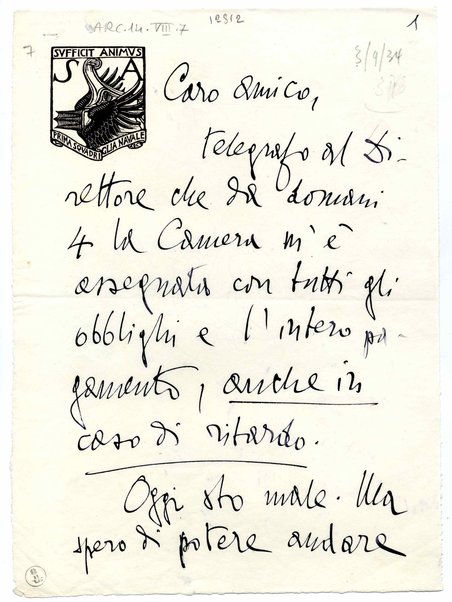 ARC.14.VIII.7
12312
1
7
3/9/34
SUFFICIT ANIMUS
S A
PRIMA SQUADRIGLIA NAVALE
Caro amico,
telegrafo al Di-
rettore che da domani
4 la Camera m'è
assegnata con tutti gli
obblighi e l'intero pa-
gamento, anche in
caso di ritardo.
Oggi sto male. Ma
spero di potere andare